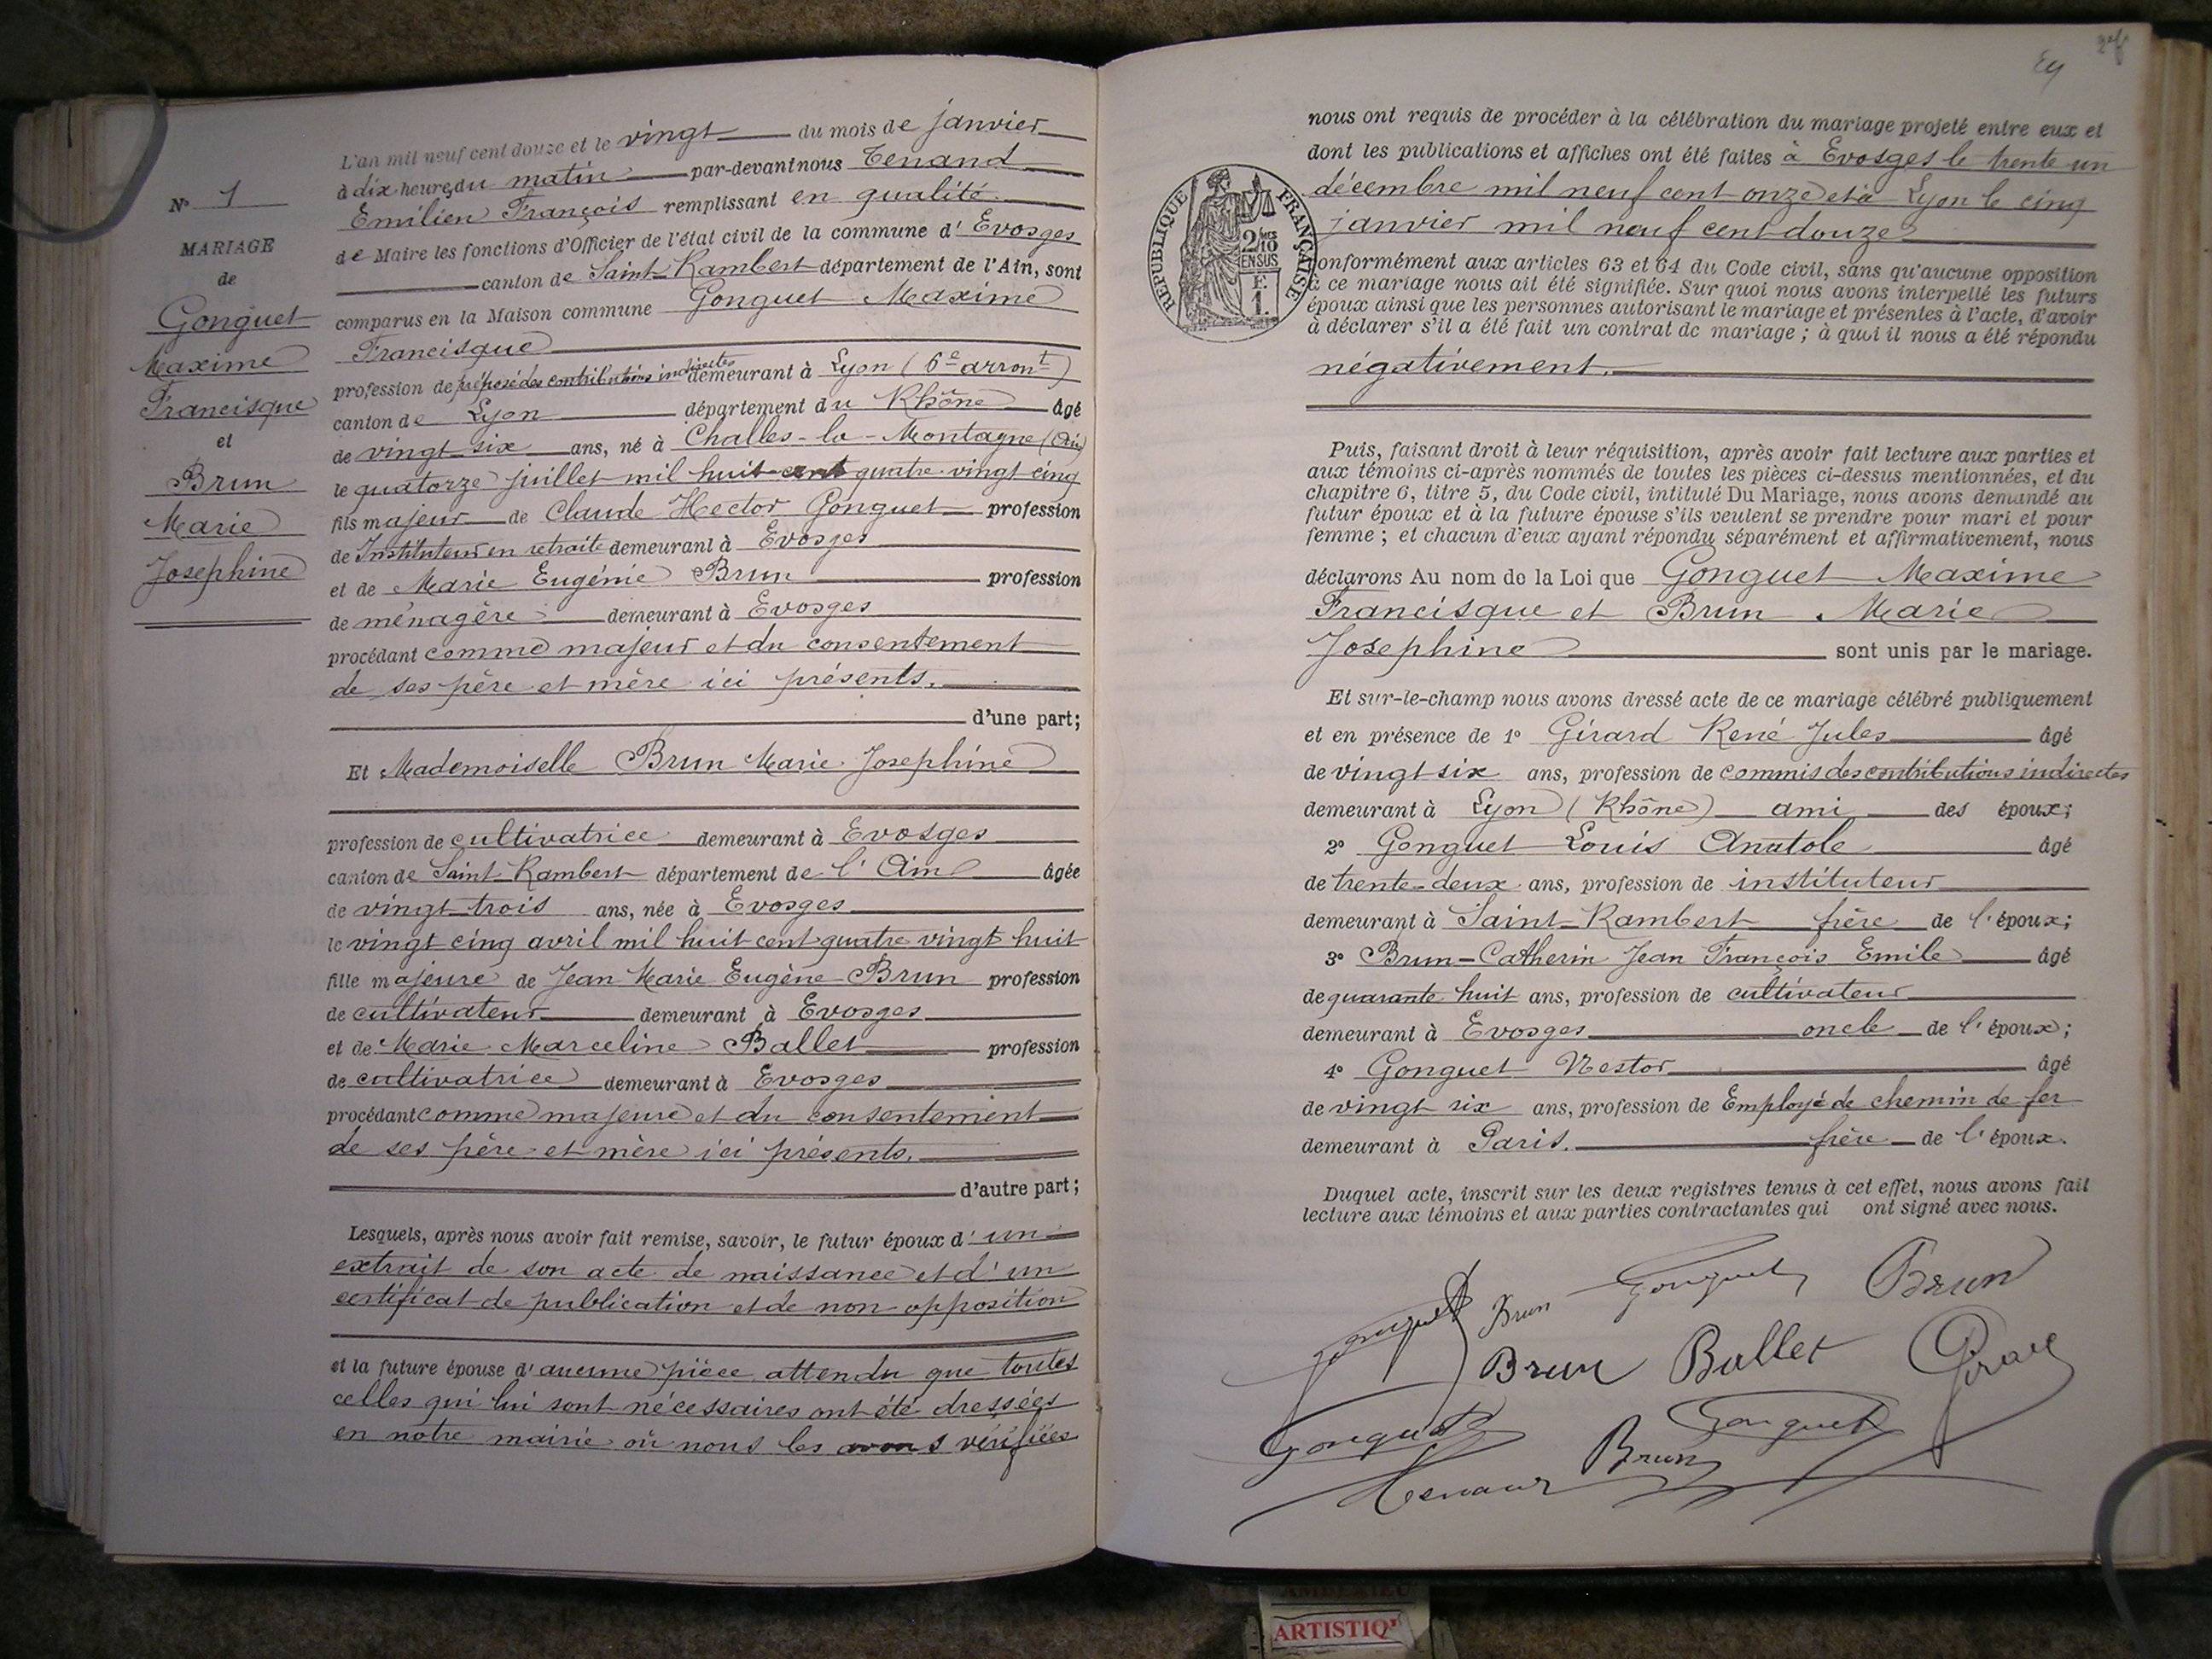 N° 1
MARIAGE
de
Gonguet
Maxime
Francisque
et
Brun
Marie
Josephine
L'an mil neuf cent douze et le vingt du mois de janvier
à dix heures du matin par-devant nous Tenand
Emilien François remplissant en qualité
de Maire les fonctions d'Officier de l'état civil de la commune d'Evosges
canton de Saint-Rambert département de l'Ain, sont
comparus en la Maison commune Gonguet Maxime
Francisque
profession de préposé des contributions indirectes demeurant à Lyon (6e arront)
canton de Lyon département du Rhône âgé
de vingt six ans, né à Challes-la-Montagne (Ain)
le quatorze juillet mil huit cent quatre vingt cinq
fils majeur de Claude Hector Gonguet profession
de Instituteur en retraite demeurant à Evosges
et de Marie Eugénie Brun profession
de ménagère demeurant à Evosges
procédant comme majeur et du consentement
de ses père et mère ici présents.
d'une part;
Et Mademoiselle Brun Marie Josephine
profession de cultivatrice demeurant à Evosges
canton de Saint-Rambert département de l'Ain âgée
de vingt trois ans, née à Evosges
le vingt cinq avril mil huit cent quatre vingt huit
fille majeure de Jean Marie Eugène Brun profession
de cultivateur demeurant à Evosges
et de Marie Marceline Ballet profession
de cultivatrice demeurant à Evosges
procédant comme majeure et du consentement
de ses père et mère ici présents.
d'autre part;
Lesquels, après nous avoir fait remise, savoir, le futur époux d'un
extrait de son acte de naissance et d'un
certificat de publication et de non-opposition
et la future épouse d'aucune pièce attendu que toutes
celles qui lui sont nécessaires ont été dressées
en notre mairie où nous les avons vérifiées
nous ont requis de procéder à la célébration du mariage projeté entre eux et
dont les publications et affiches ont été faites à Evosges le trente un
décembre mil neuf cent onze et à Lyon le cinq
janvier mil neuf cent douze
RÉPUBLIQUE FRANÇAISE
2/10
EN SUS
F.
1.
conformément aux articles 63 et 64 du Code civil, sans qu'aucune opposition
à ce mariage nous ait été signifiée. Sur quoi nous avons interpellé les futurs
époux ainsi que les personnes autorisant le mariage et présentes à l'acte, d'avoir
à déclarer s'il a été fait un contrat de mariage ; à quoi il nous a été répondu
négativement.
Puis, faisant droit à leur réquisition, après avoir fait lecture aux parties et
aux témoins ci-après nommés de toutes les pièces ci-dessus mentionnées, et du
chapitre 6, titre 5, du Code civil, intitulé Du Mariage, nous avons demandé au
futur époux et à la future épouse s'ils veulent se prendre pour mari et pour
femme ; et chacun d'eux ayant répondu séparément et affirmativement, nous
déclarons Au nom de la Loi que Gonguet Maxime
Francisque et Brun Marie
Josephine sont unis par le mariage.
Et sur-le-champ nous avons dressé acte de ce mariage célébré publiquement
et en présence de 1° Girard René Jules âgé
de vingt six ans, profession de commis des contributions indirectes
demeurant à Lyon (Rhône) ami des époux;
2° Gonguet Louis Anatole âgé
de trente-deux ans, profession de instituteur
demeurant à Saint-Rambert frère de l'époux;
3° Brun-Catherin Jean François Emile âgé
de quarante huit ans, profession de cultivateur
demeurant à Evosges oncle de l'époux;
4° Gonguet Nestor âgé
de vingt six ans, profession de Employé de chemin de fer
demeurant à Paris. frère de l'époux.
Duquel acte, inscrit sur les deux registres tenus à cet effet, nous avons fait
lecture aux témoins et aux parties contractantes qui ont signé avec nous.
Gonguet Brun Gonguet Brun
Brun Ballet Girard
Gonguet Brun Gonguet
Tenand
ARTISTIQ